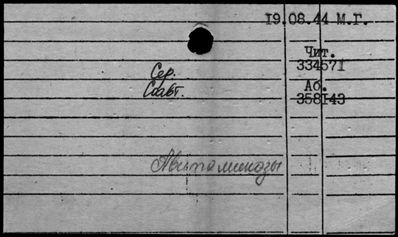 19.08.44 М.Г.
Чит.
334571
Сер.
Соавт.
Аб.
358143
Авитаминозы